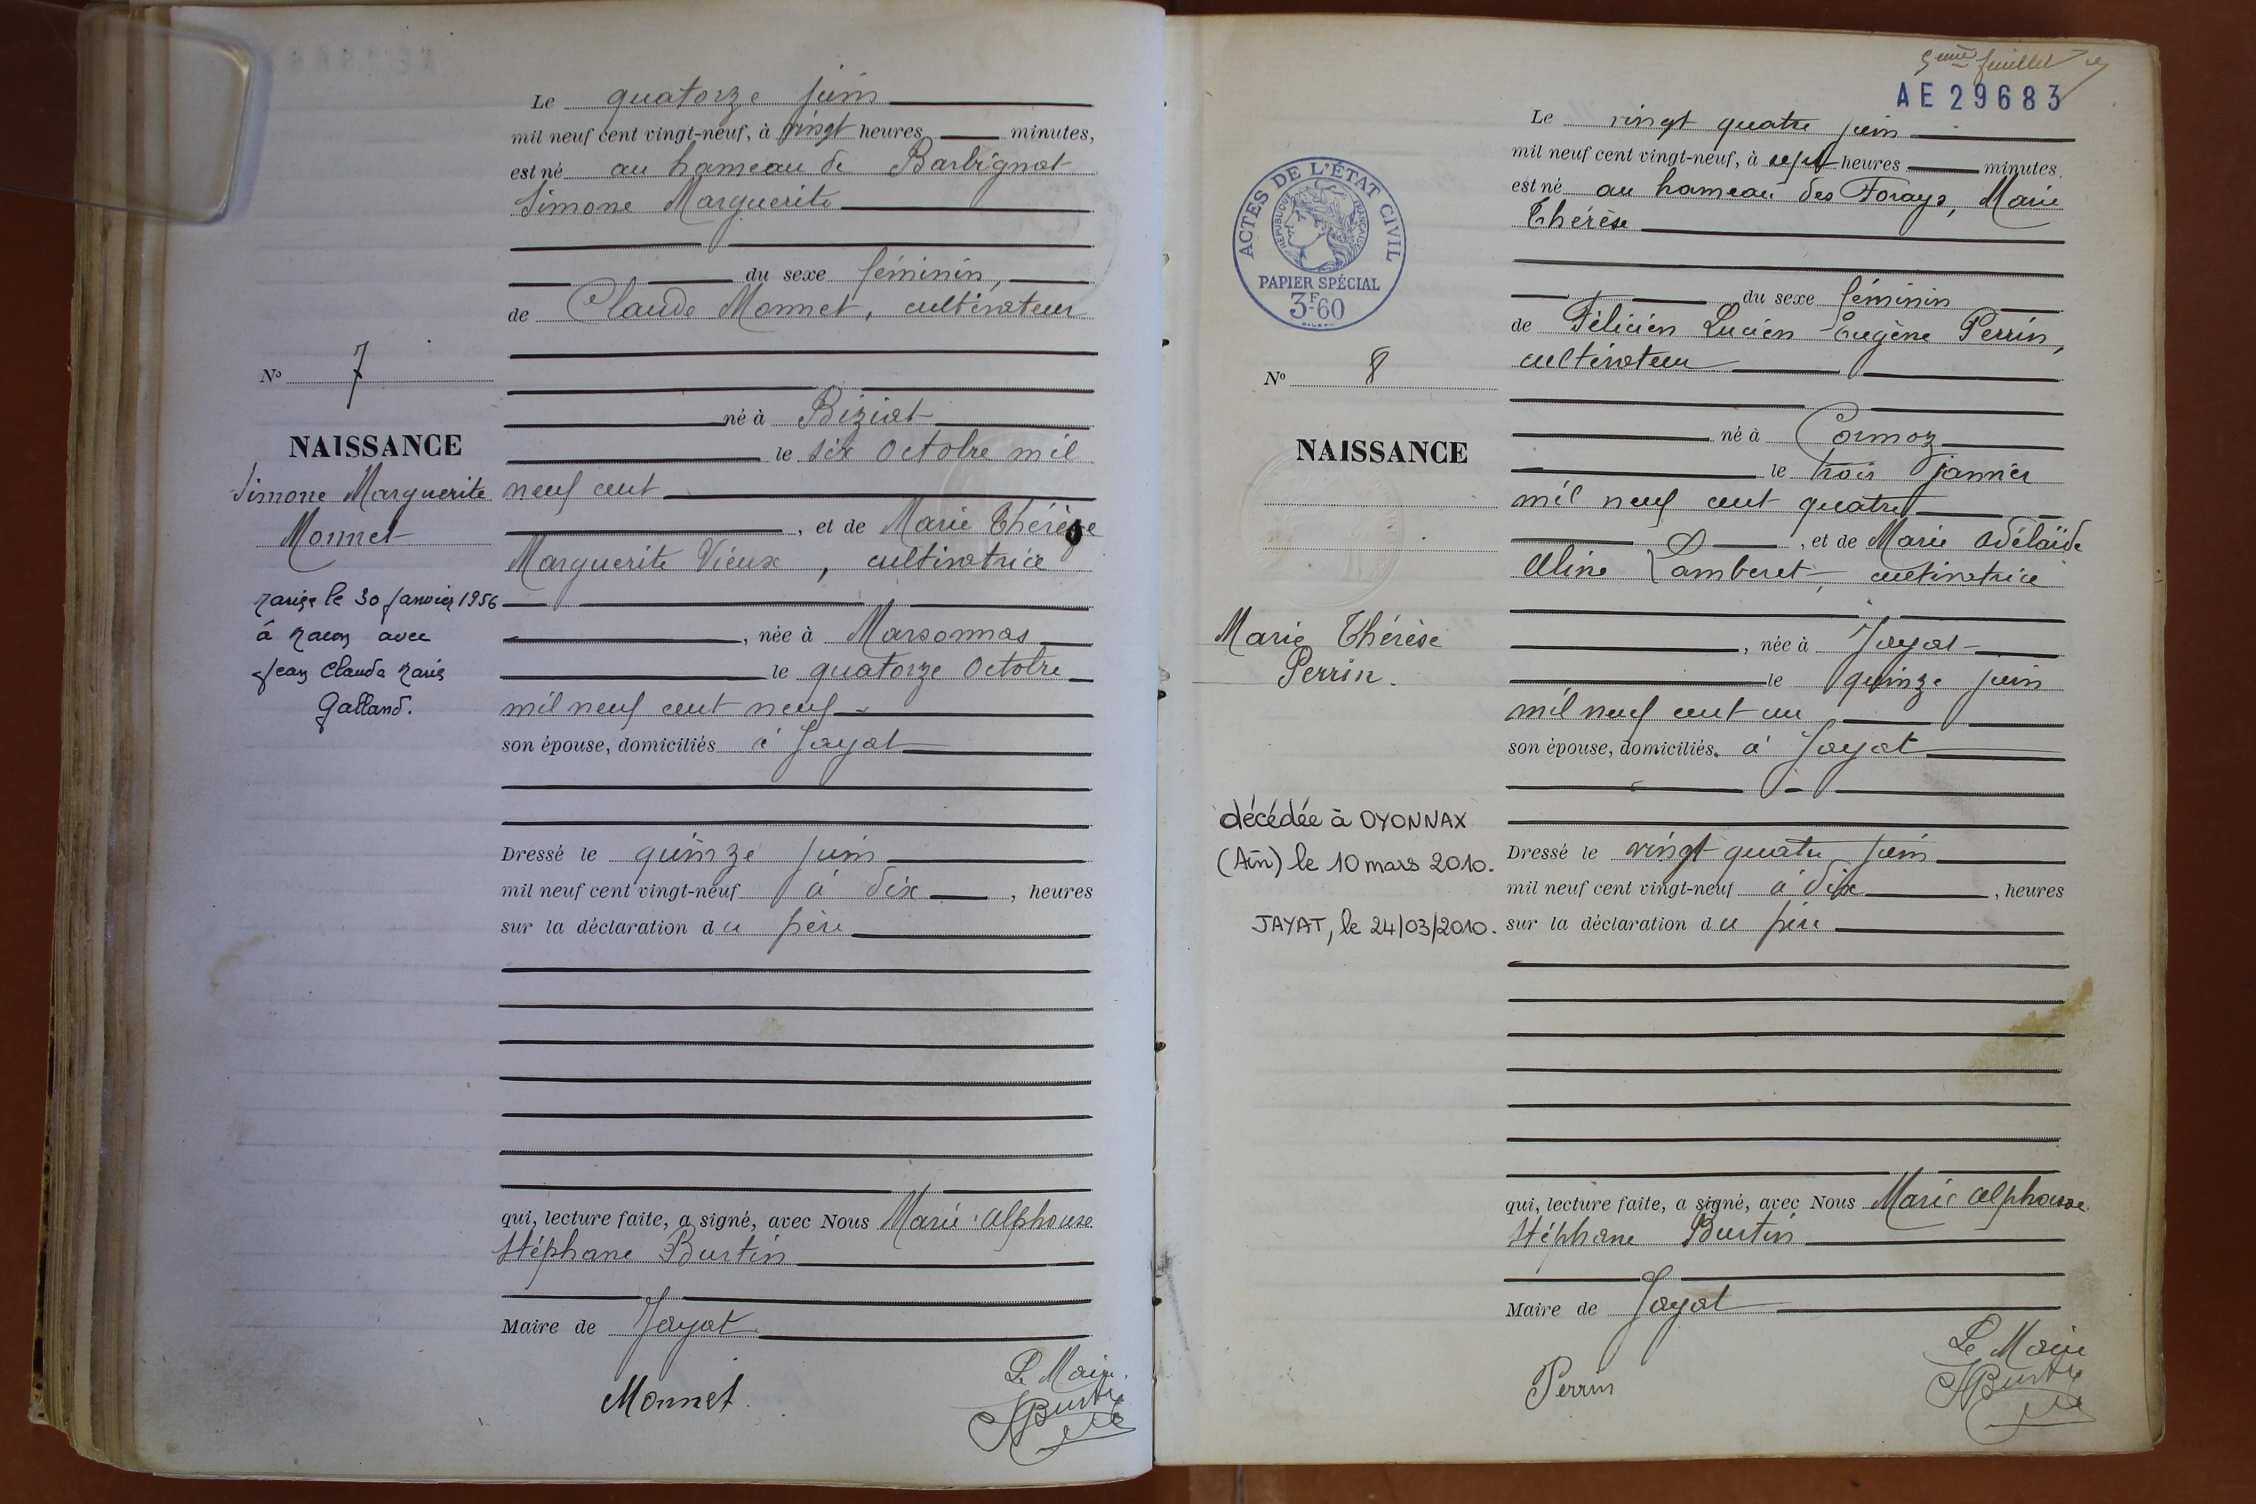 Le quatorze juin
mil neuf cent vingt-neuf, à vingt heures minutes,
est né au hameau de Barbignat
Simone Marguerite
du sexe féminin,
de Claude Monnet, cultivateur
né à Biziat
le six Octobre mil
neuf cent
, et de Marie Thérèse
Marguerite Vieux, cultivatrice
, née à Marsonnas
le quatorze Octobre
mil neuf cent neuf
son épouse, domiciliés à Jayat
Dressé le quinze juin
mil neuf cent vingt-neuf à dix , heures
sur la déclaration du père
qui, lecture faite, a signé, avec Nous Marie Alphonse
Stéphane Burtin
Maire de Jayat
Monnet
Le Maire
Burtin
No 7
NAISSANCE
Simone Marguerite
Monnet
Mariée le 30 Janvier 1956
à Macon avec
Jean Claude Marie
Galland.
5ème feuillet
AE 29683
ACTES DE L'ÉTAT CIVIL
RÉPUBLIQUE FRANÇAISE
PAPIER SPÉCIAL
3F60
No 8
NAISSANCE
Marie Thérèse
Perrin.
décédée à OYONNAX
(Ain) le 10 mars 2010.
JAYAT, le 24/03/2010.
Le vingt quatre juin
mil neuf cent vingt-neuf, à sept heures minutes
est né au hameau des Forays, Marie
Thérèse
du sexe féminin
de Félicien Lucien Eugène Perrin,
cultivateur
né à Cormoz
le trois janvier
mil neuf cent quatre
, et de Marie Adélaïde
Aline Lamberet, cultivatrice
, née à Jayat
le quinze juin
mil neuf cent un
son épouse, domiciliés à Jayat
Dressé le vingt quatre juin
mil neuf cent vingt-neuf à dix , heures
sur la déclaration du père
qui, lecture faite, a signé, avec Nous Marie Alphonse
Stéphane Burtin
Maire de Jayat
Perrin
Le Maire
Burtin